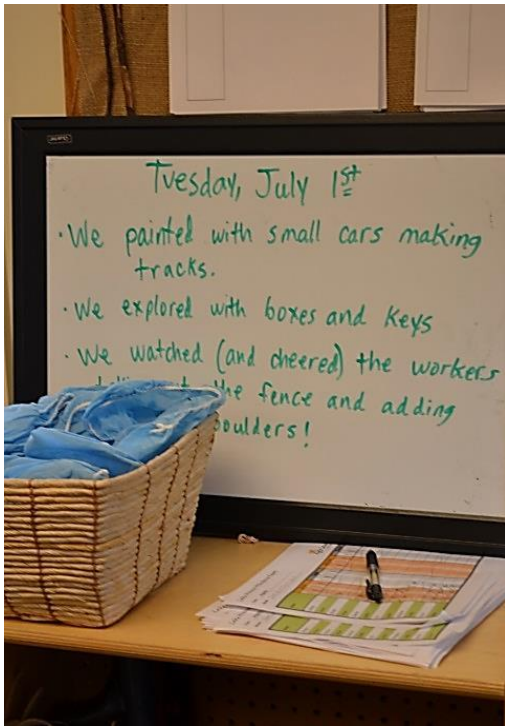 Tuesday, July 1st
· We painted with small cars making
tracks.
· We explored with boxes and keys
· We watched (and cheered) the workers
the fence and adding
boulders!